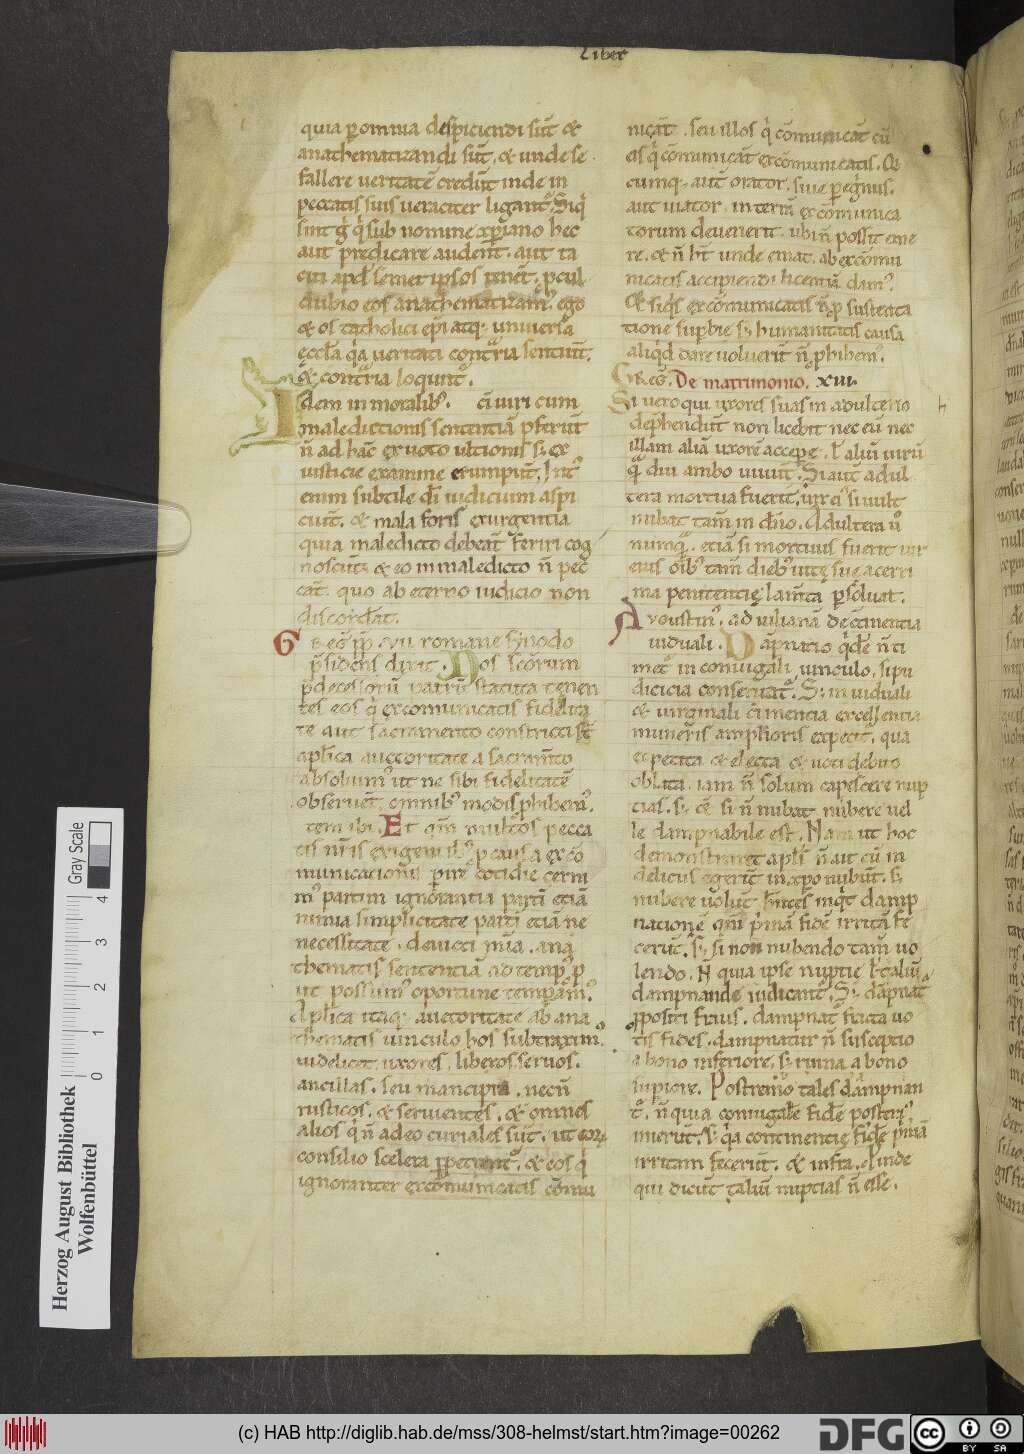 Liber
quia p omnia despiciendi sūt &
anathematizandi sūt, & unde se
fallere veritatē credūt inde in
peccatis suis veraciter ligant᷒. Siq͛
sint g͛ q͛ sub nomine xp̄iano hec
aut predicare audent̄. aut ta
citi apd̄ semet ipsos tenēt. p̱cul
dubio eos anathematizam᷒. ego
& os catholici ep̄i atq; universa
eccl̄a q͛a veritati cont͛ria sentiūt.
& cont͛ria loqunt᷒.
Idem in moralib᷒. cū viri cum
maledictionis sententiā pferūt
n̄ ad hāc ex voto ultionis s; ex
iusticie examine erumpūt. Int᷒
enim subtile dī iudicium aspi
ciūt. & mala foris exurgentia
quia maledicto debeāt feriri cog
noscūt; & eo in maledicto n̄ pec
cāt. quo ab eterno iudicio non
discordāt.
Greg̱. pp̄. vii. romane synodo
p̄sidens dixit. Nos scōrum
p̄decessorū patrū statuta tenen
tes eos q͛ excomunicatis fidelita
te aut sacramento constricti sūt
aplīca auctoritate a sacram̄to
absolvim᷒ ut ne sibi fidelitatē
observēt. omnib᷒ modis p̱hibem᷒.
Item ibi. Et qm̄ multos pecca
tis nr̄is exigentib᷒ p causa exco
municationis perire cotidie cerni
m᷒ partim ignorantia partī etiā
nimia simplicitate partī etiā ne
necessitate. devicti mīa. ana
thematis sententiā ad temp᷒ p
ut possum᷒ oportune temp̱am᷒.
Aplīca itaq; auctoritate ab ana
thematis vinculo hos subtraxim᷒.
videlicet uxores, liberos servos.
ancillas. seu mancipia. necn̄
rusticos. & servientes. & omnes
alios q͛ n̄ adeo curiales sūt. ut eor̄
consilio scelera p̱petrent᷒. & eos q͛
ignoranter excōmunicatis cōmu
nicāt. seu illos q͛ cōmunicāt cū
eis q͛ cōmunicāt excōmunicatis. Qi
cumq; aut̄ orator. sive p̱eg͛nus.
aut viator in terrā excōmunica
torum devenerit. ubi n̄ possit eme
re. & n̄ hīt unde emat. ab excōmu
nicatis accipiendi licentiā dam᷒.
Et siq͛s excōmunicatis n̄ p̱ sustenta
tione sup̱bie s; humanitatis causa
aliq͛d dare voluerit n̄ p̱hibem᷒.
Greg̱. De matrimonio. xvii.
Si vero qui uxores suas in adulterio
dep̄hendūt non licebit nec eū nec
illam aliā uxorē accip̱e. l̄ aliū virū
q͛m diu ambo vivūt. Si aut̄ adul
tera mortua fuerit. vir ei᷒ si vult
nubat tam̄ in dn̄o. Adultera v̊
numq͛. etiā si mortuus fuerit vir
eius oīb᷒ tam̄ dieb᷒ vite sue acerri
ma penitentie lam̄ta p̱solvat.
Augustin᷒. ad iulianā de cōtinentia
viduali. Dāpnatio q͛dē n̄ ti
met᷒ in coniugali vinculo. si pu
dicicia conservat᷒. S; in viduali
& virginali cōtinencia excellentia
muneris amplioris expetit. qua
expetita & electa & voti debito
oblita. iam n̄ solum capescere nup
cias. s; & si n̄ nubat nubere vel
le dampnabile est. Nam ut hoc
demonstraret apl̄s n̄ ait cū in
deliciis egerīt in xp̄o nubūt. s;
nubere volūt. hn̄tes inq͛t damp
nationē qm̄ p͛mā fidē irritā fe
cerūt. s; si non nubendo tam̄ vo
lendo. N̄ quia ipse nuptie l̄ taliū
dampnande iudicant᷒. S; dāpnat᷒
p̱positi fraus. dampnat᷒ fracta vo
tis fides. dampnatur n̄ susceptio
a bono inferiore. s; ruina a bono
sup̱iore. Postremo tales dāpnan
t᷒. n̄ quia coniugalē fidē posteri᷒
inierūt. s; q͛a continentie fidē p͛mā
irritam fecerūt. & infra. Proinde
qui dicūt taliū nuptias n̄ esse.
Herzog August Bibliothek
Wolfenbüttel
Gray Scale
0 1 2 3 4
(c) HAB http://diglib.hab.de/mss/308-helmst/start.htm?image=00262
DFG
cc BY SA